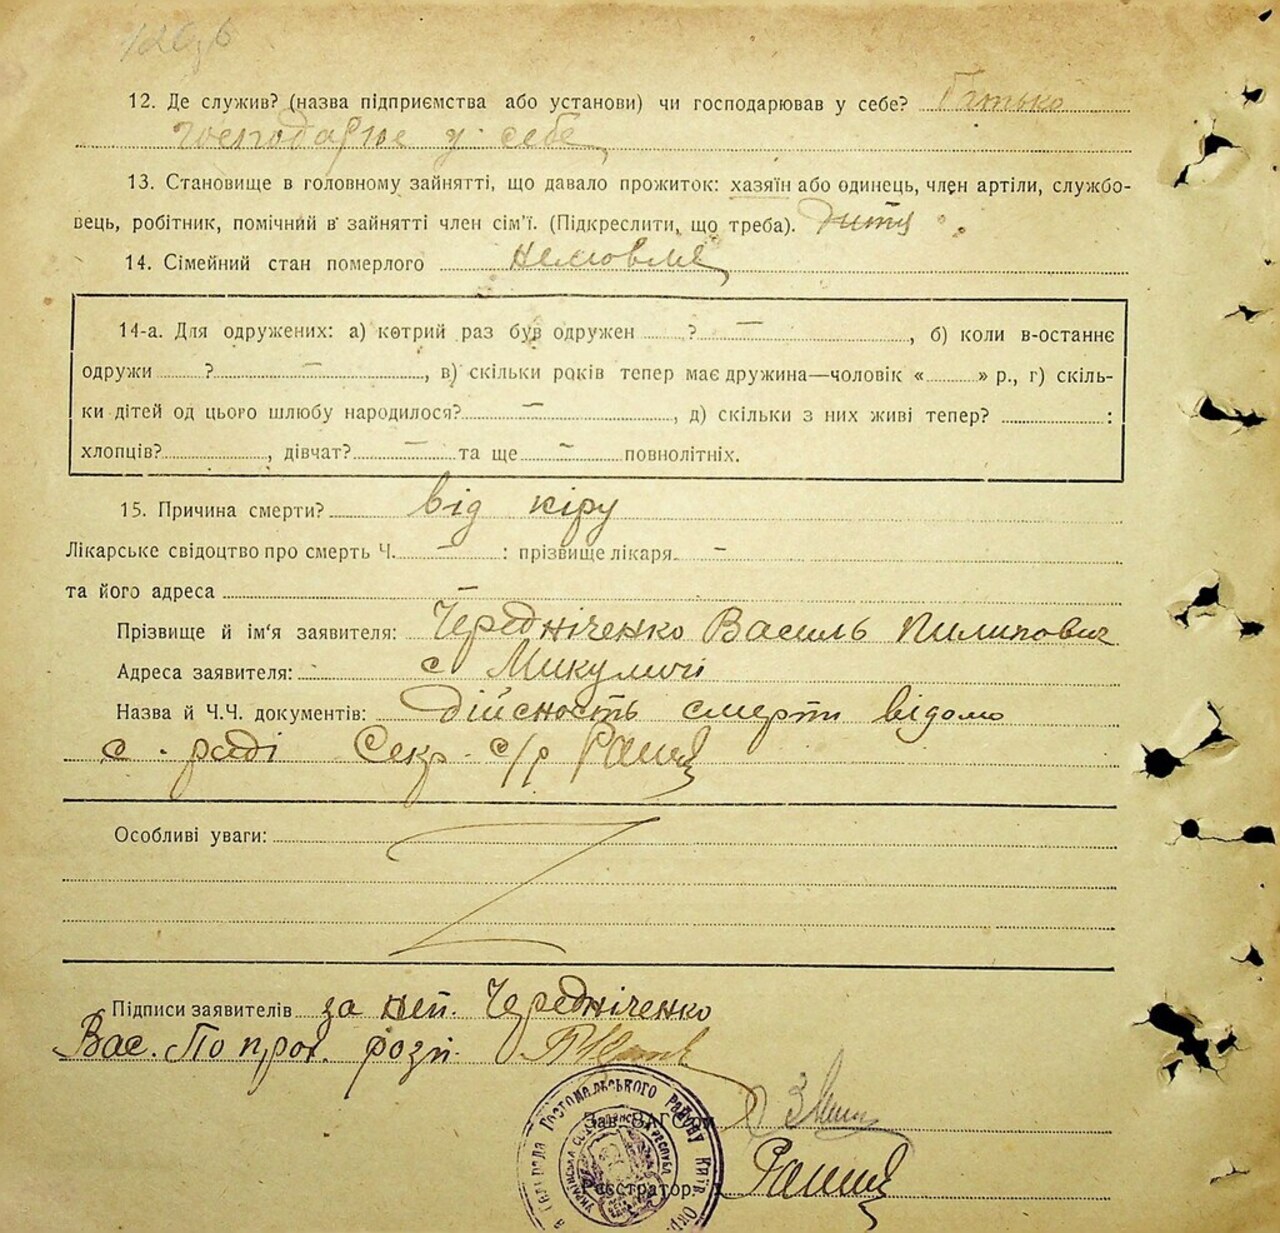 12. Де служив? (назва підприємства або установи) чи господарював у себе? Батько
господарює у себе
13. Становище в головному зайнятті, що давало прожиток: хазяїн або одинець, член артіли, службо-
вець, робітник, помічний в зайнятті член сім'ї. (Підкреслити, що треба). дитя
14. Сімейний стан померлого немовля
14-а. Для одружених: а) котрий раз був одружен ? —, б) коли в-останнє
одружи ? —, в) скільки років тепер має дружина—чоловік « » р., г) скіль-
ки дітей од цього шлюбу народилося? —, д) скільки з них живі тепер? :
хлопців? , дівчат? — та ще — повнолітніх.
15. Причина смерти? від кіру
Лікарське свідоцтво про смерть Ч. — : прізвище лікаря —
та його адреса
Прізвище й ім'я заявителя: Чередніченко Василь Пилипович
Адреса заявителя: с Микуличі
Назва й Ч.Ч. документів: Дійсность смерти відомо
с. раді Секр. с/р
Особливі уваги:
Підписи заявителів за неп. Чередніченко
Вас. По прох. розп.
Зав. ВАГС'ом
Реєстратор
Гостомельського району Київ. Окр.